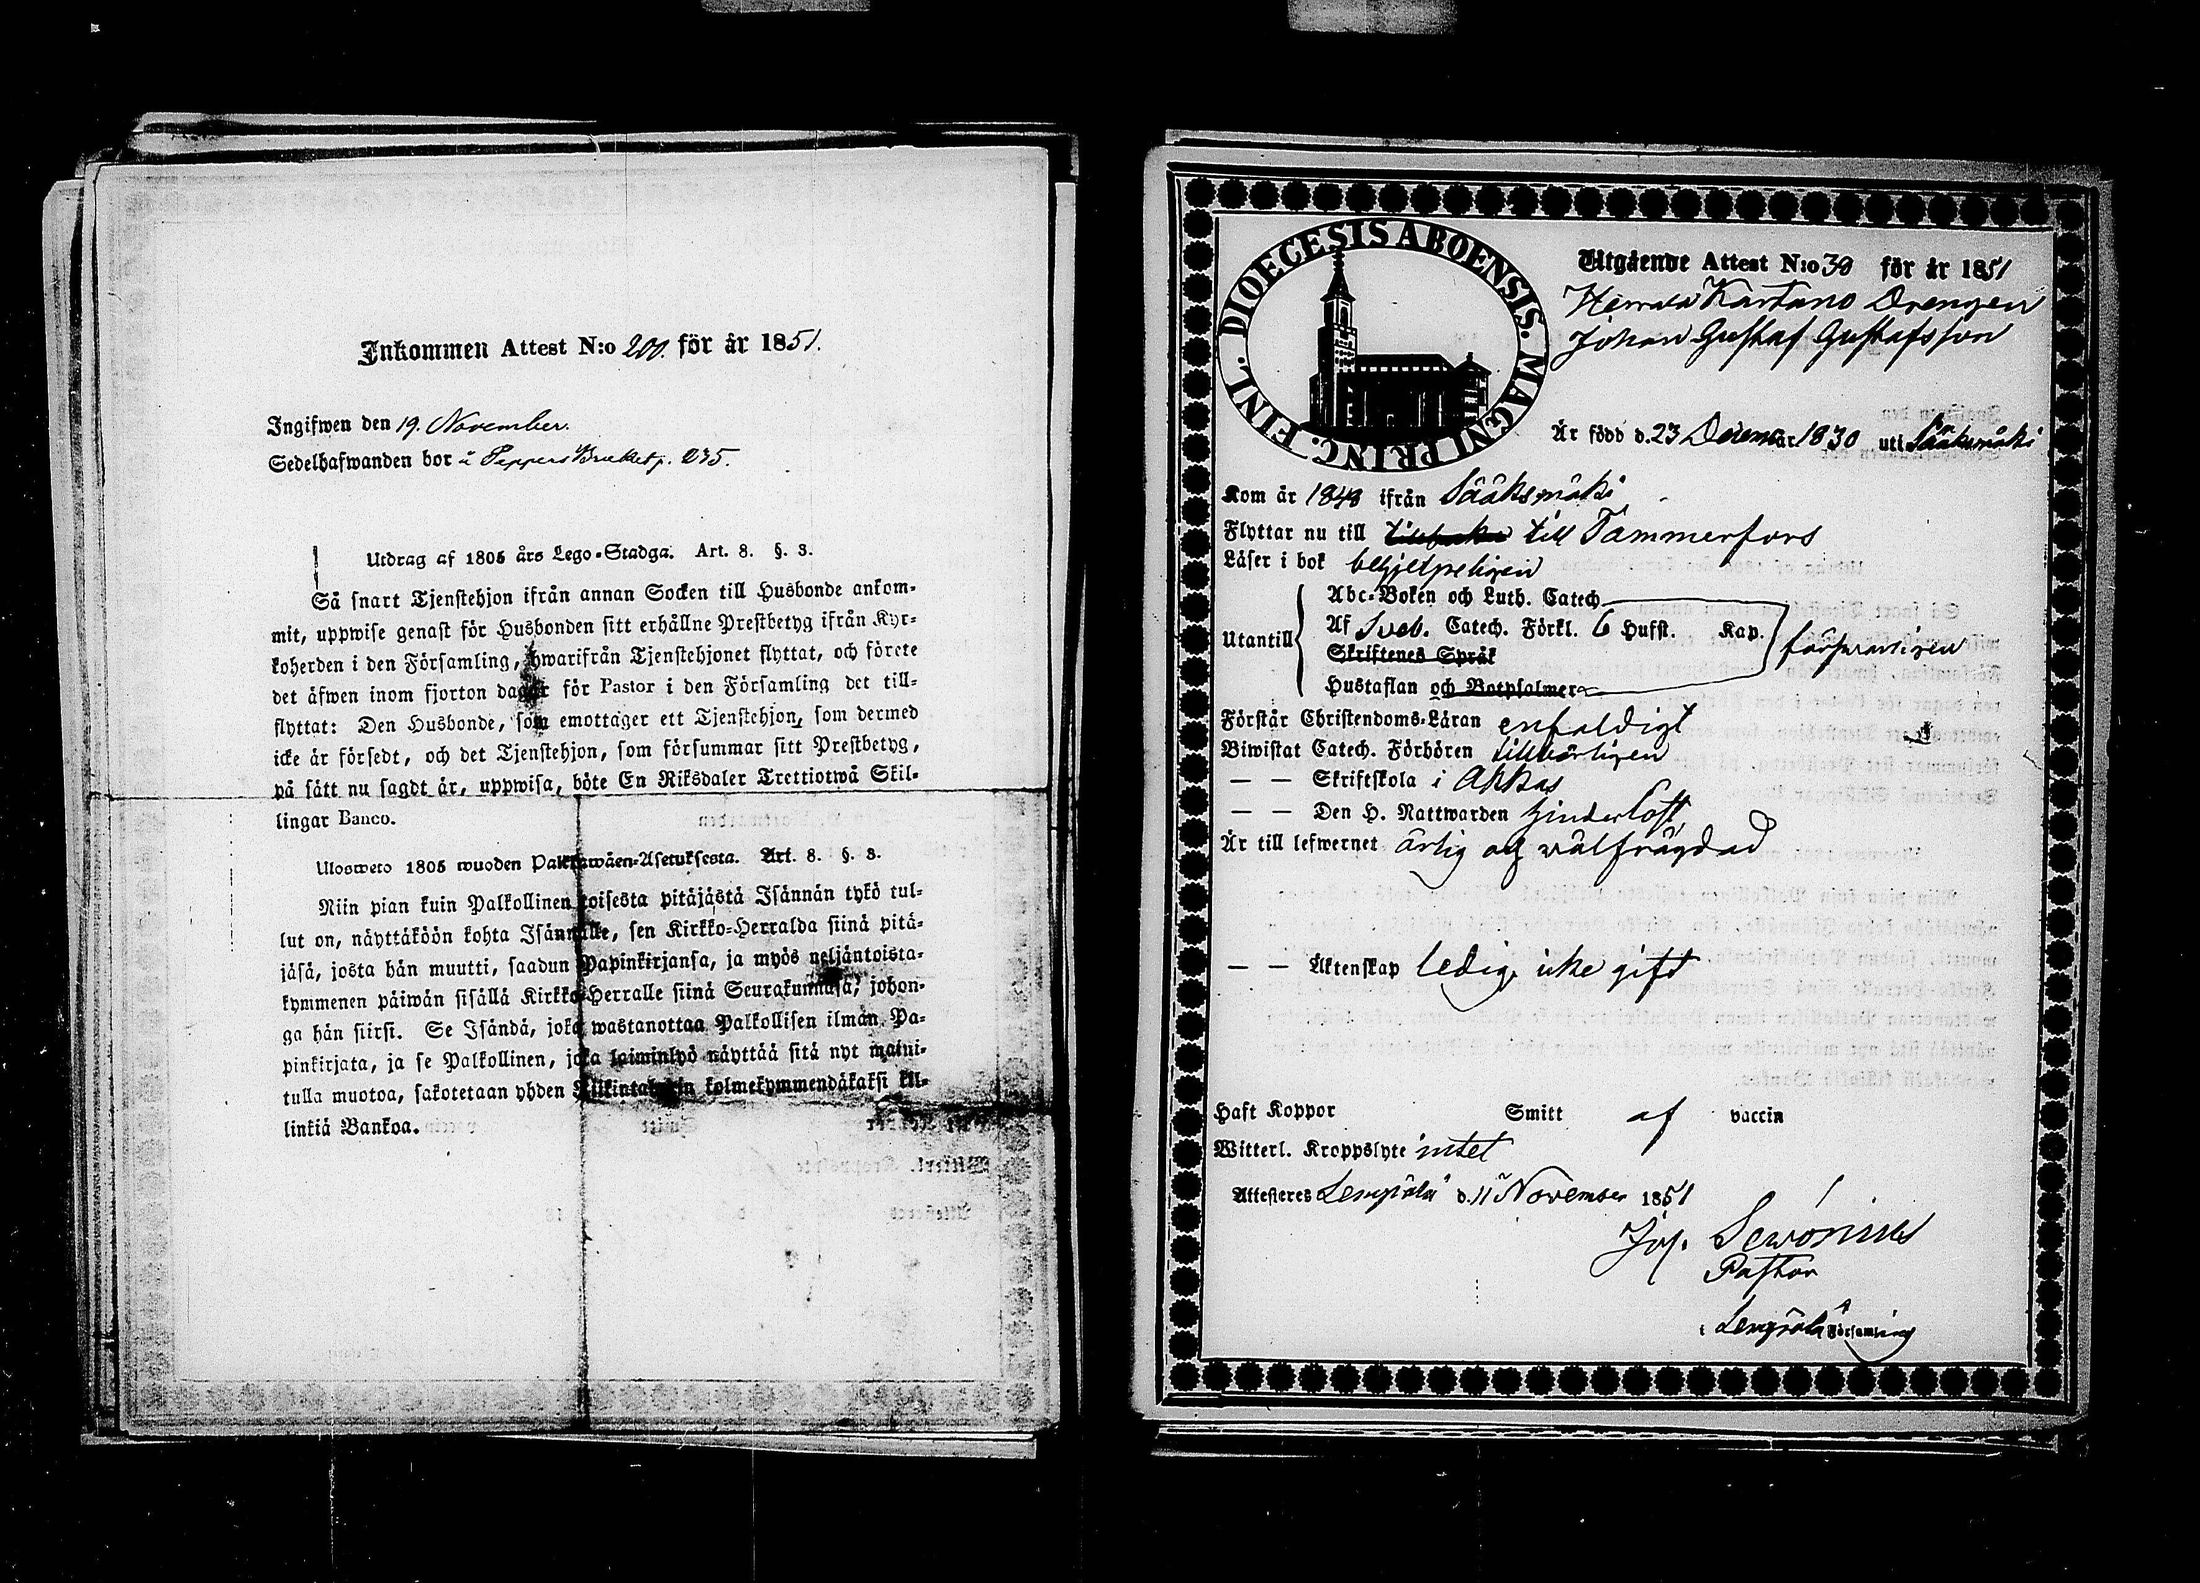 Inkommen Attest N:o 200. för år 1851.
Ingifwen den 19. November.
Sedelhafwanden bor å Peppers Bruket p. 235.
Utdrag af 1805 års Lego-Stadga. Art. 8. §. 3.
Så snart Tjenstehjon ifrån annan Socken till Husbonde ankom-
mit, uppwise genast för Husbonden sitt erhållne Prestbetyg ifrån Kyr-
koherden i den Församling, hwarifrån Tjenstehjonet flyttat, och förete
det äfwen inom fjorton dagar för Pastor i den Församling det till-
flyttat: Den Husbonde, som emottager ett Tjenstehjon, som dermed
icke är försedt, och det Tjenstehjon, som försummar sitt Prestbetyg,
på sätt nu sagdt är, uppwisa, böte En Riksdaler Trettiotwå Skil-
lingar Banco.
Ulosweto 1805 wuoden Palkkawäen-Asetuksesta. Art. 8. §. 3.
Niin pian kuin Palkollinen toisesta pitäjästä Isännän tykö tul-
lut on, näyttäköön kohta Isännälle, sen Kirkko-Herralda siinä pitä-
jäsä, josta hän muutti, saadun Papinkirjansa, ja myös neljäntoista-
kymmenen päiwän sisällä Kirkko-Herralle siinä Seurakunnasa, johon-
ga hän siirsi. Se Isändä, joka wastanottaa Palkollisen ilman Pa-
pinkirjata, ja se Palkollinen, joka laiminlyö näyttää sitä nyt maini-
tulla muotoa, sakotetaan yhden Riikintalarin kolmekymmendäkaksi kil-
linkiä Bankoa.
DIOECESIS ABOENSIS. MAGNI PRINC. FINL.
Utgående Attest N:o 30 för år 1851
Herrala Kartano Drengen
Johan Gustaf Gustafsson
Är född d. 23 Decemb. år 1830 uti Sääksmäki
Kom år 1848 ifrån Sääksmäki
Flyttar nu till till Tammerfors
Läser i bok
Abc-Boken och Luth. Catech.
Utantill Af Sveb. Catech. Förkl. 6 Hufst. Kap. försvarligen
Skriftenes Språk
Hustaflan och Botpsalmer
Förstår Christendoms-Läran enfaldigt
Biwistat Catech. Förhören tillbörligen
— — Skriftskola i Akkas
— — Den H. Nattwarden hinderlöst
Är till lefwernet ärlig och välfrägdad
— — Äktenskap ledig, icke gift
Haft Koppor Smitt af vaccin
Witterl. Kroppslyte intet
Attesteres Lempälä d. 11 November 1851
Jos. Sewonius
Pastor
i Lempälä Församling